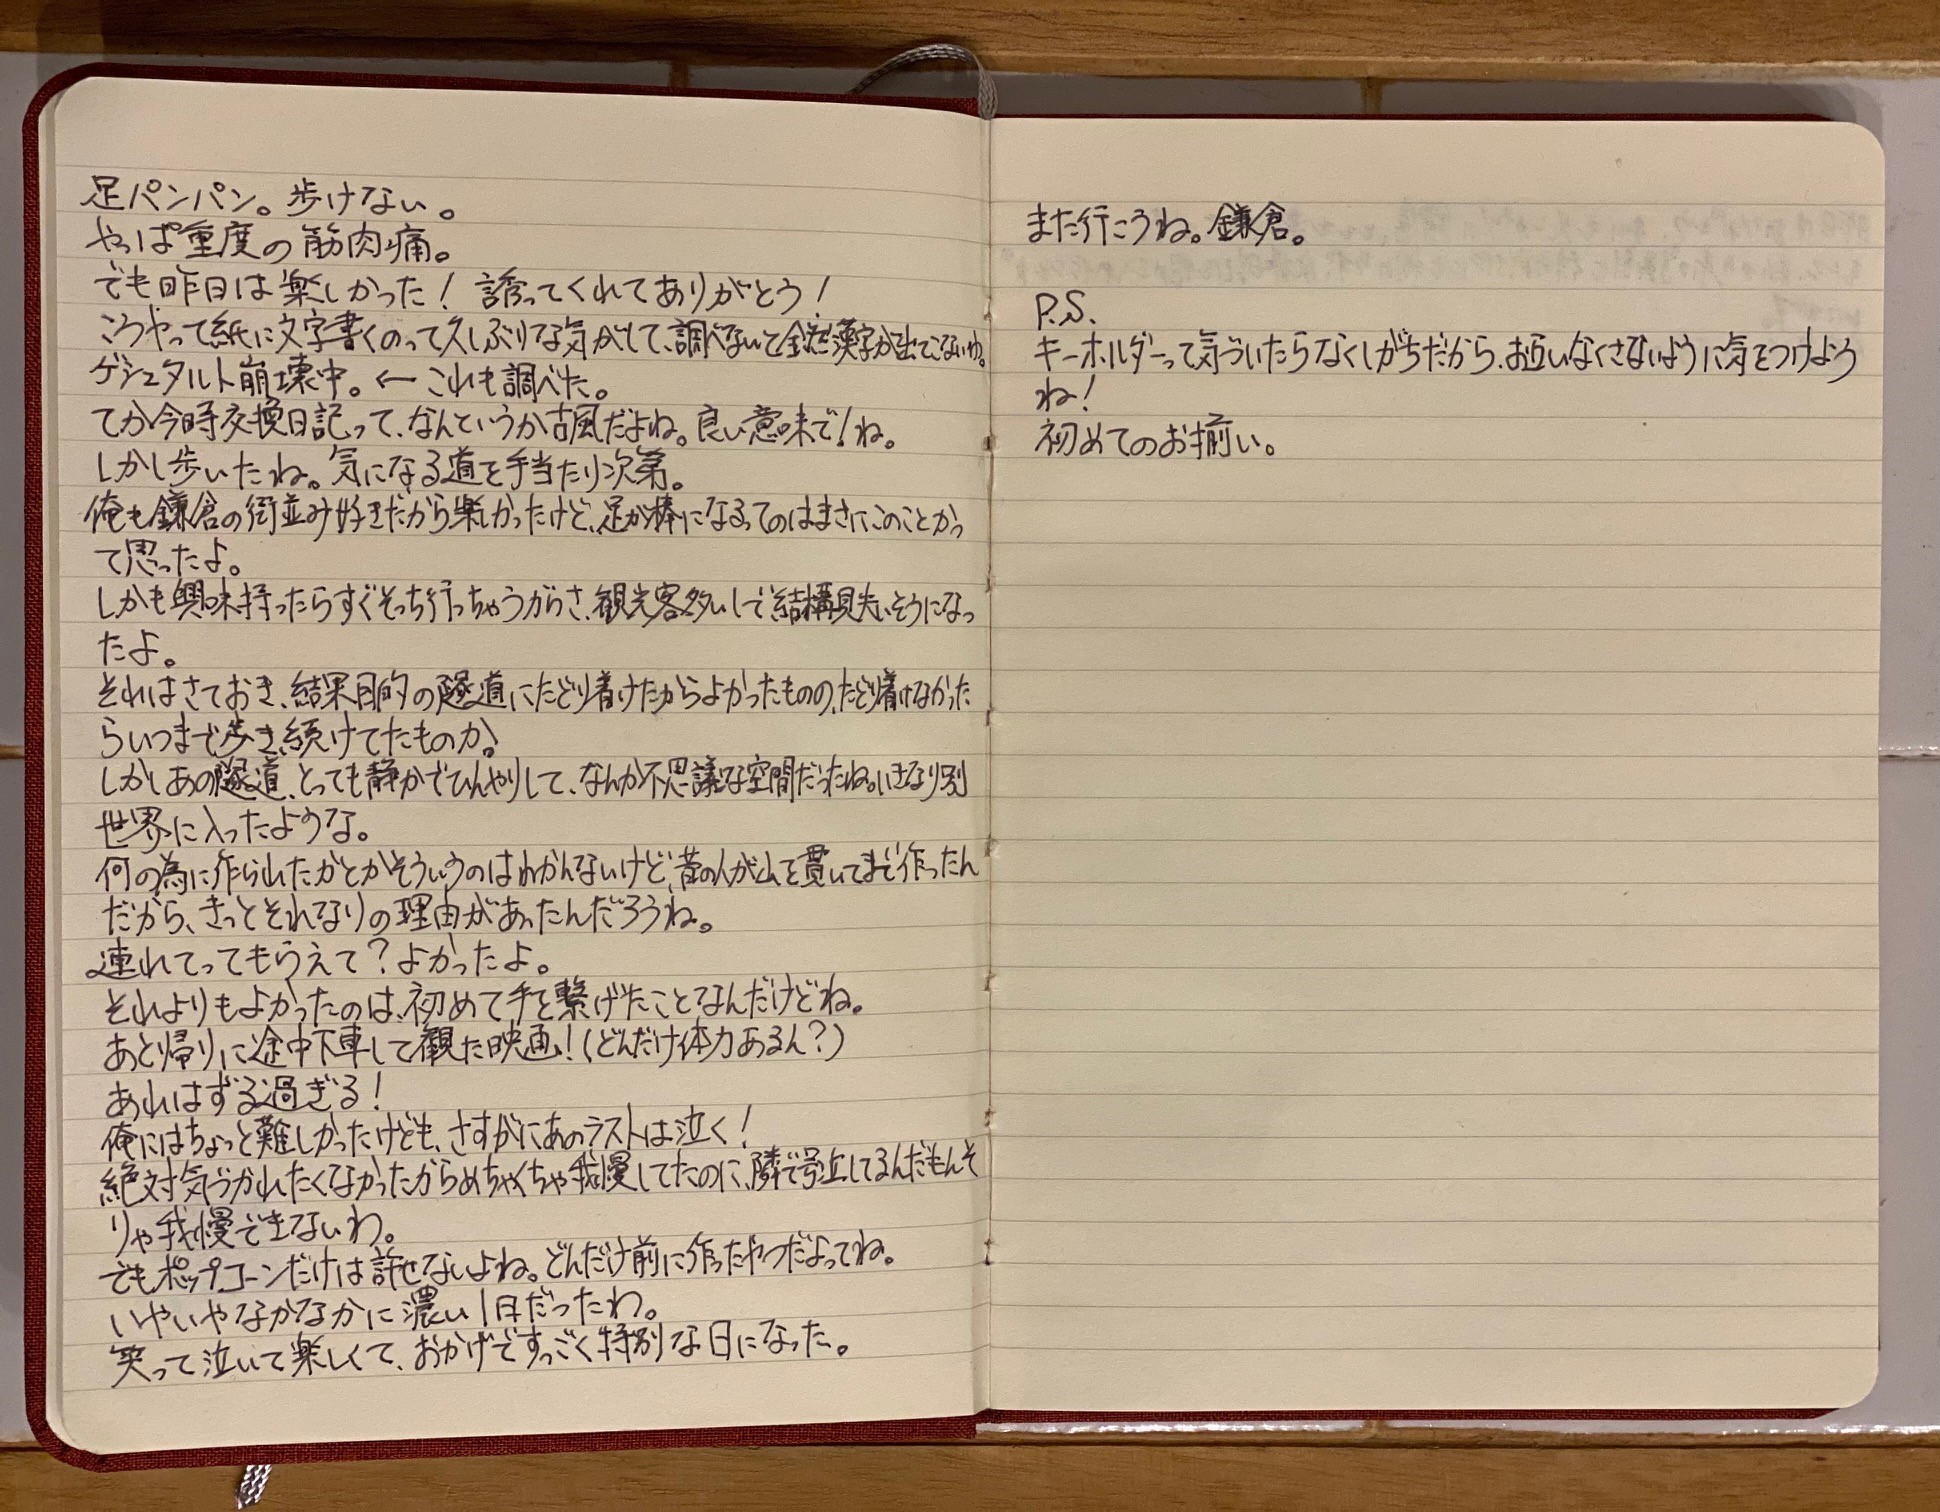 足パンパン。歩けない。
やっぱ重度の筋肉痛。
でも昨日は楽しかった！誘ってくれてありがとう！
こうやって紙に文字書くのって久しぶりな気がして、調べないと全然漢字が出てこないわ。
ゲシュタルト崩壊中。←これも調べた。
てか今時交換日記って、なんというか古風だよね。良い意味で！ね。
しかし歩いたね。気になる道を手当たり次第。
俺も鎌倉の街並み好きだから楽しかったけど、足が棒になるってのはまさにこのことかっ
て思ったよ。
しかも興味持ったらすぐそっち行っちゃうがらさ、観光客多いしで結構見失いそうになっ
たよ。
それはさておき、結果目的の隧道にたどり着けたからよかったものの、たどり着けなかった
らいつまで歩き続けてたものか。
しかしあの隧道、とっても静かでひんやりして、なんか不思議な空間だったね。いきなり別
世界に入ったような。
何の為に作られたがとかそういうのはわかんないけど、昔の人が山を貫いてまで作ったん
だから、きっとそれなりの理由があったんだろうね。
連れてってもらえて？よかったよ。
それよりもよかったのは、初めて手を繋げたことなんだけどね。
あと帰りに途中下車して観た映画！（どんだけ体力あるん？）
あれはずる過ぎる！
俺にはちょっと難しかったけども、さすがにあのラストは泣く！
絶対気づかれたくなかったからめちゃくちゃ我慢してたのに、隣で号泣してるんだもんそ
りゃ我慢できないわ。
でもポップコーンだけは許せないよね。どんだけ前に作ったやつだよってね。
いやいやなかなかに濃い1日だったわ。
笑って泣いて楽しくて、おかげですっごく特別な日になった。
また行こうね。鎌倉。
P.S.
キーホルダーって気づいたらなくしがちだから、お互いなくさないように気をつけよう
ね！
初めてのお揃い。